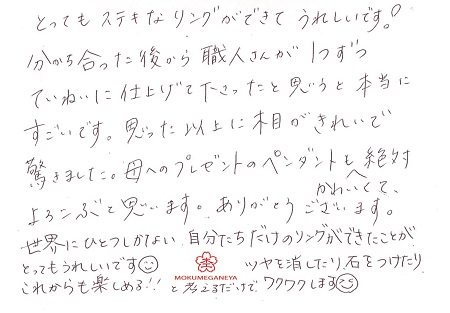 とってもステキなリングができてうれしいです。
分かち合った後から職人さんが1つずつ
ていねいに仕上げて下さったと思うと本当に
すごいです。思った以上に木目がきれいで
驚きました。母へのプレゼントのペンダントも絶対
かわいくて、
よろこぶと思います。ありがとうございます。
世界にひとつしかない自分たちだけのリングができたことが
とってもうれしいです
MOKUMEGANEYA
ツヤを消したり石をつけたり
これからも楽しめる!!と考えるだけでワクワクします